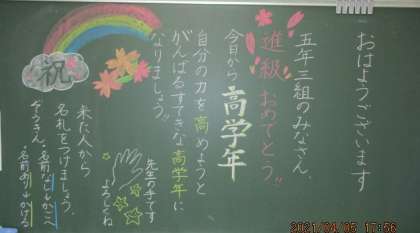 おはようございます
五年三組のみなさん、
進級おめでとう!!
今日から高学年
自分の力を高めようと
がんばるすてきな高学年に
なりましょう!!
祝
先生の手です
よろしくね
来た人から
名札をつけましょう。
ぞうきん
・名前なし→かごへ
・名前あり→かける
2021/04/05 17:56